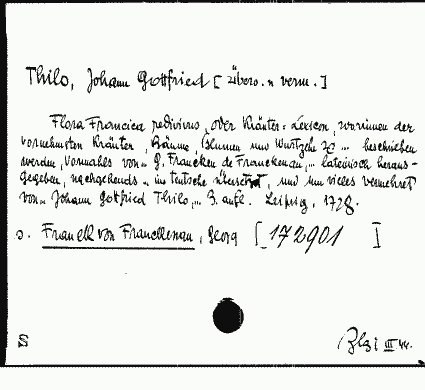 Thilo, Johann Gottfried [Übers. u. verm.]
Flora Francica rediviva, oder Kräuter-Lexicon, worinnen der
vornehmsten Kräuter, Bäume, Blumen und Wurtzeln ... beschrieben
werden, vormahls von G. Francken de Franckenau, ... lateinisch heraus-
gegeben, nachgehends ... ins teutsche übersetzt, und um vieles vermehret
von Johann Gotfried Thilo, ... 3. aufl. Leipzig, 1728.
s. Franck von Franckenau, Georg [172901]
S III 44.